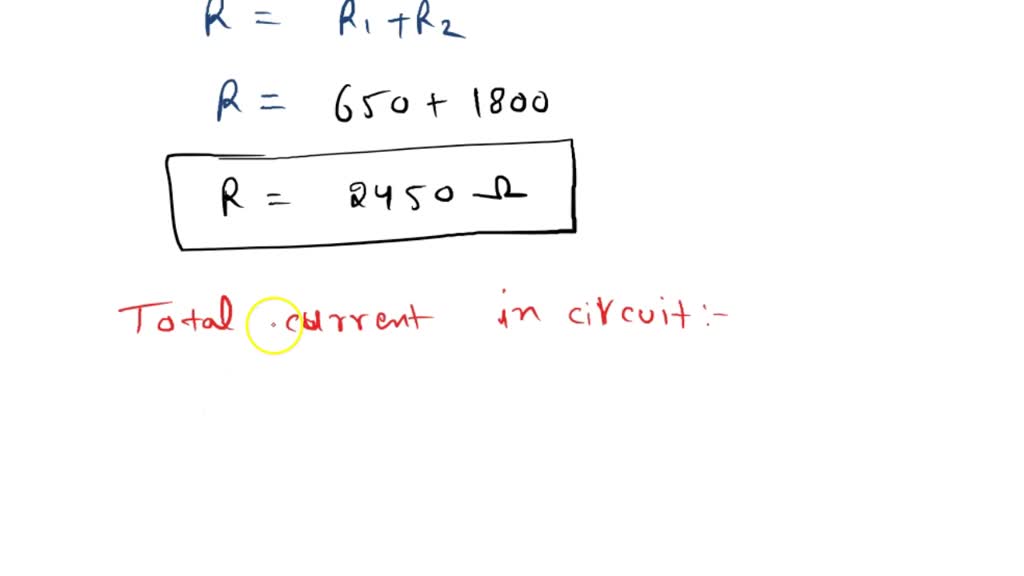 R = R₁ + R₂
R = 650 + 1800
R = 2450 Ω
Total current in circuit :-